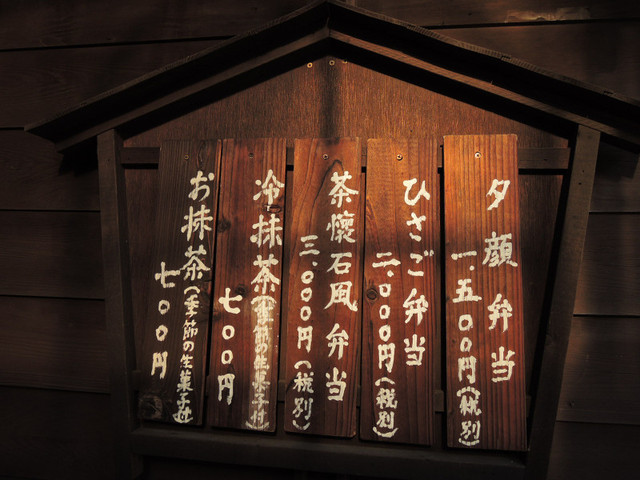 夕顔弁当
一、五〇〇円(税別)
ひさご弁当
二、〇〇〇円(税別)
茶懐石風弁当
三、〇〇〇円(税別)
冷抹茶(季節の生菓子付
七〇〇円
お抹茶(季節の生菓子付
七〇〇円